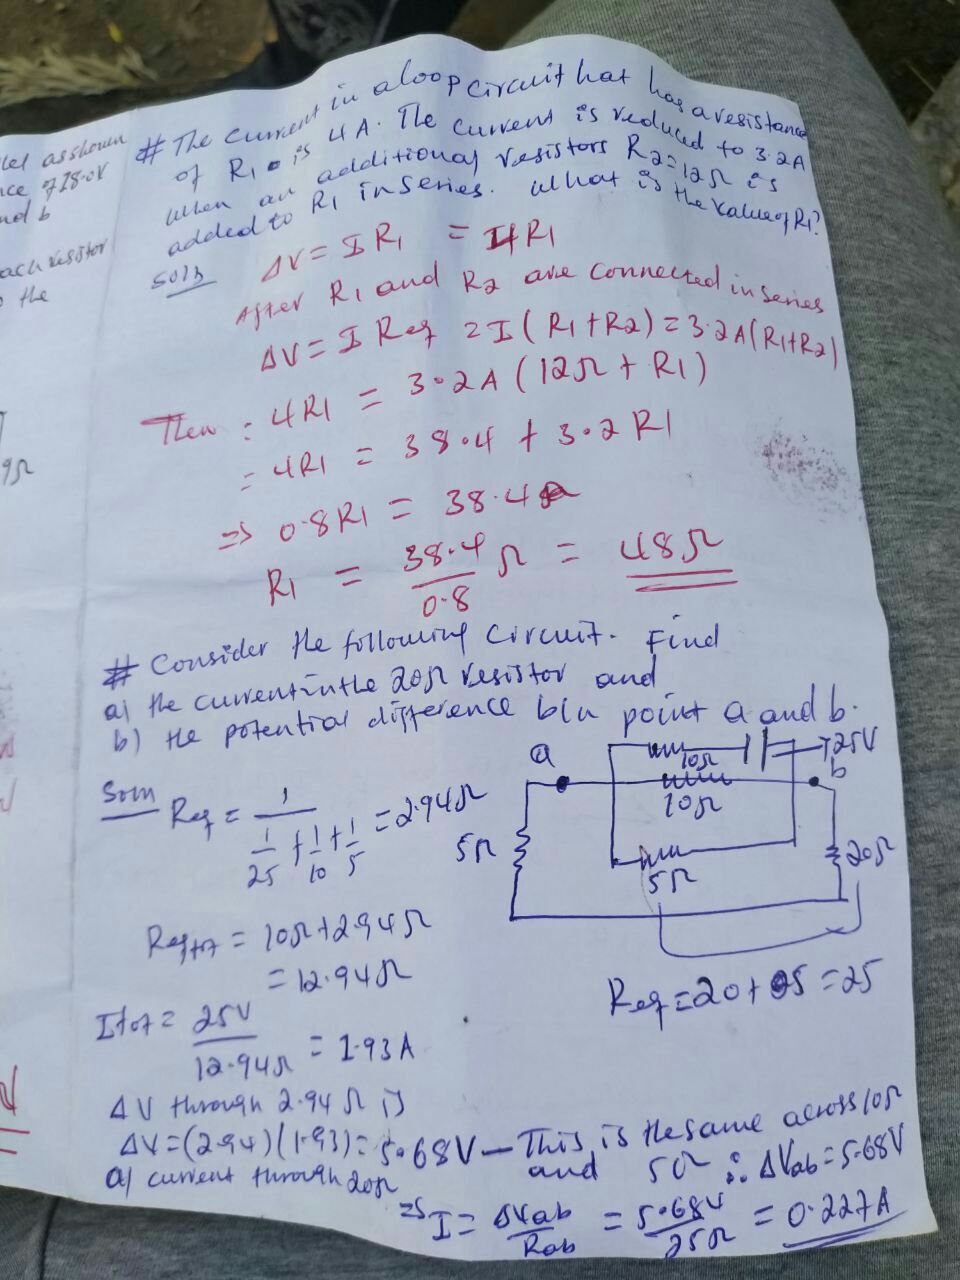 llel as shown
nce of 18.0V
and b
each resistor
o the
9Ω
# The current in a loop circuit that has a resistance
of R1 is 4A. The current is reduced to 3.2A
when an additional resistors R2=12Ω is
added to R1 in series. What is the value of R1?
Soln
ΔV = I R1 = 4R1
After R1 and R2 are connected in series
ΔV = I Req = I(R1+R2) = 3.2A(R1+R2)
Then : 4R1 = 3.2A (12Ω + R1)
= 4R1 = 38.4 + 3.2 R1
=> 0.8R1 = 38.4
R1 = 38.4/0.8 Ω = 48Ω
# Consider the following circuit. Find
a) the current in the 20Ω resistor and
b) the potential difference b/n point a and b.
a
10Ω
25V
b
10Ω
5Ω
5Ω
20Ω
Soln
Req = 1/(1/25 + 1/10 + 1/5) = 2.94Ω
Reqtot = 10Ω + 2.94Ω
= 12.94Ω
Req = 20 + 5 = 25
Itot = 25V/12.94Ω = 1.93A
ΔV through 2.94Ω is
ΔV = (2.94)(1.93) = 5.68V — This is the same across 10Ω
and 5Ω ∴ ΔVab = 5.68V
a) current through 20Ω
=> I = ΔVab/Rab = 5.68V/25Ω = 0.227A